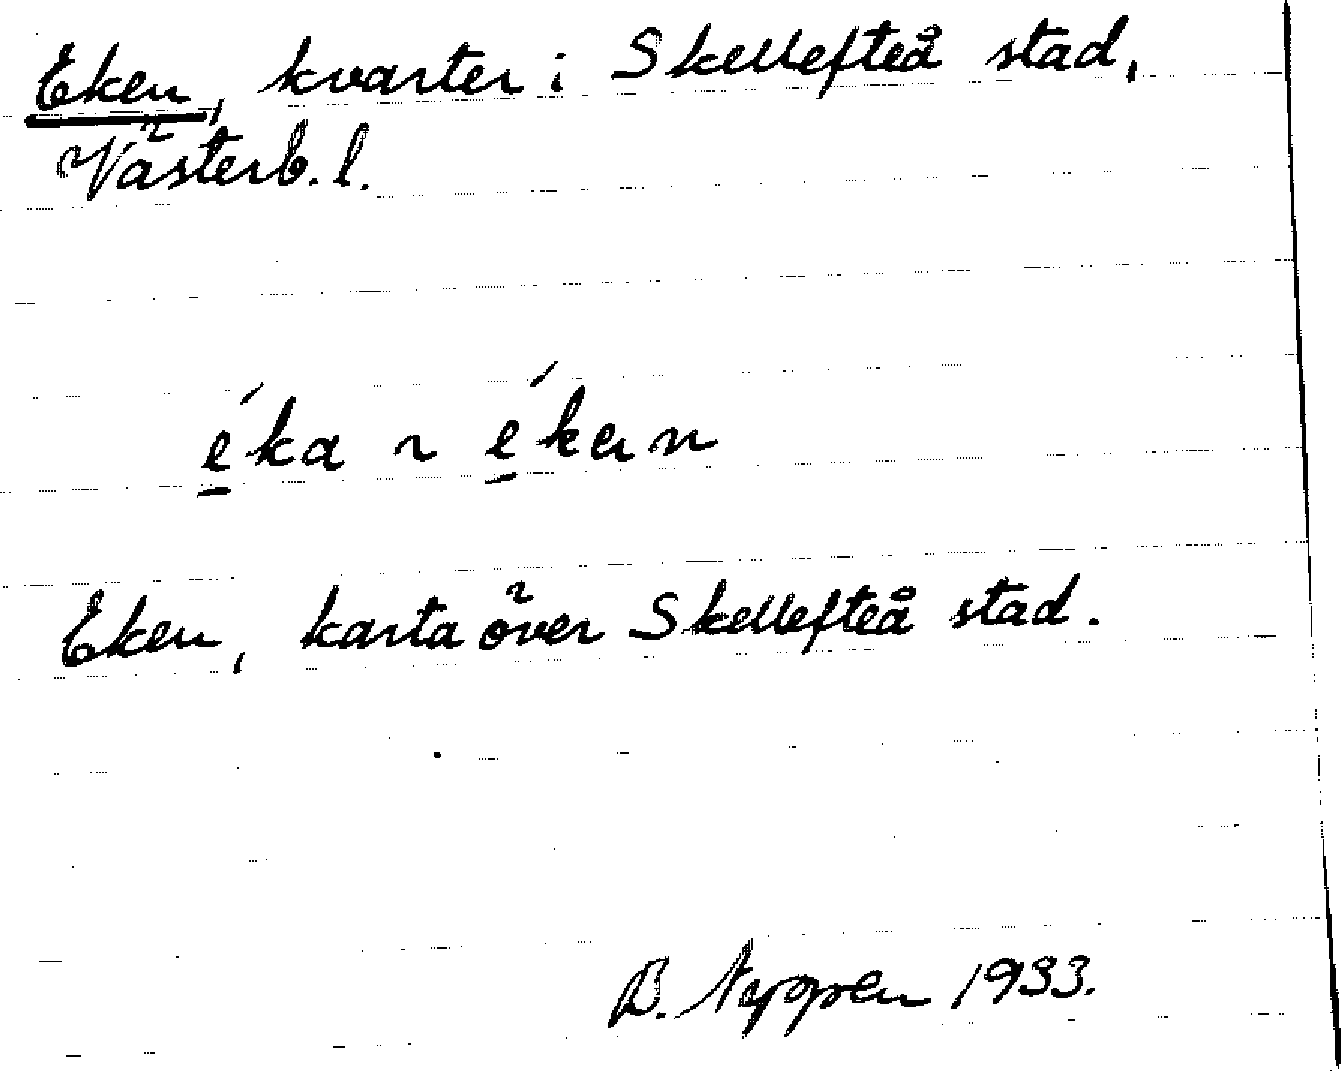 Eken, kvarter i Skellefteå stad,
Västerb. l.
e̲´ka ~ e̲´kan
Eken, karta över Skellefteå stad.
B. 1933.